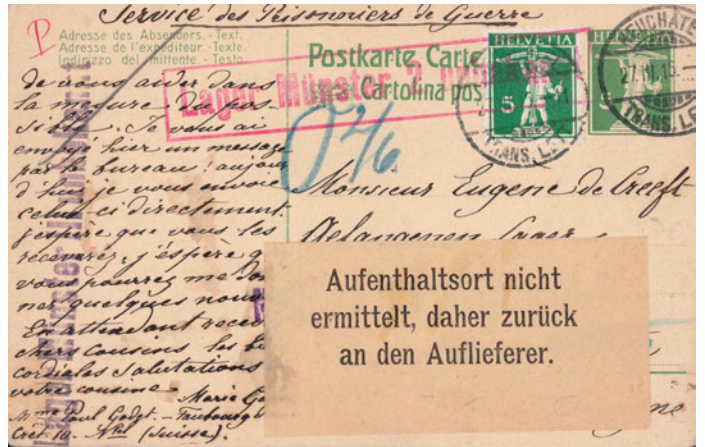 Service des Prisonniers de Guerre
P
Adresse des Absenders. - Text.
Adresse de l'expéditeur. - Texte.
Indirizzo del mittente. - Testo.
Postkarte. Carte
Cartolina pos
HELVETIA
5
TRANS. LET
NEUCHATEL
27.III.15.
TRANS. LE
Lager Münster 2
0 2/6
de vous aider dans
la mesure du pos
sible. Je vous ai
envoyé hier un message
par le bureau: aujour
d'hui je vous envoie
celui-ci directement
j'espère que vous les
recevrez, j'espère q
vous pourrez me don
ner quelques nouv
En attendant recev
chers cousins les
cordiales salutations
votre cousine
Marie Go
Mme Paul Godet. - Faubourg
Crêt 10. Ntel (Suisse).
Monsieur Eugene de Creeft
Gefangenen Lager
Aufenthaltsort nicht
ermittelt, daher zurück
an den Auflieferer.